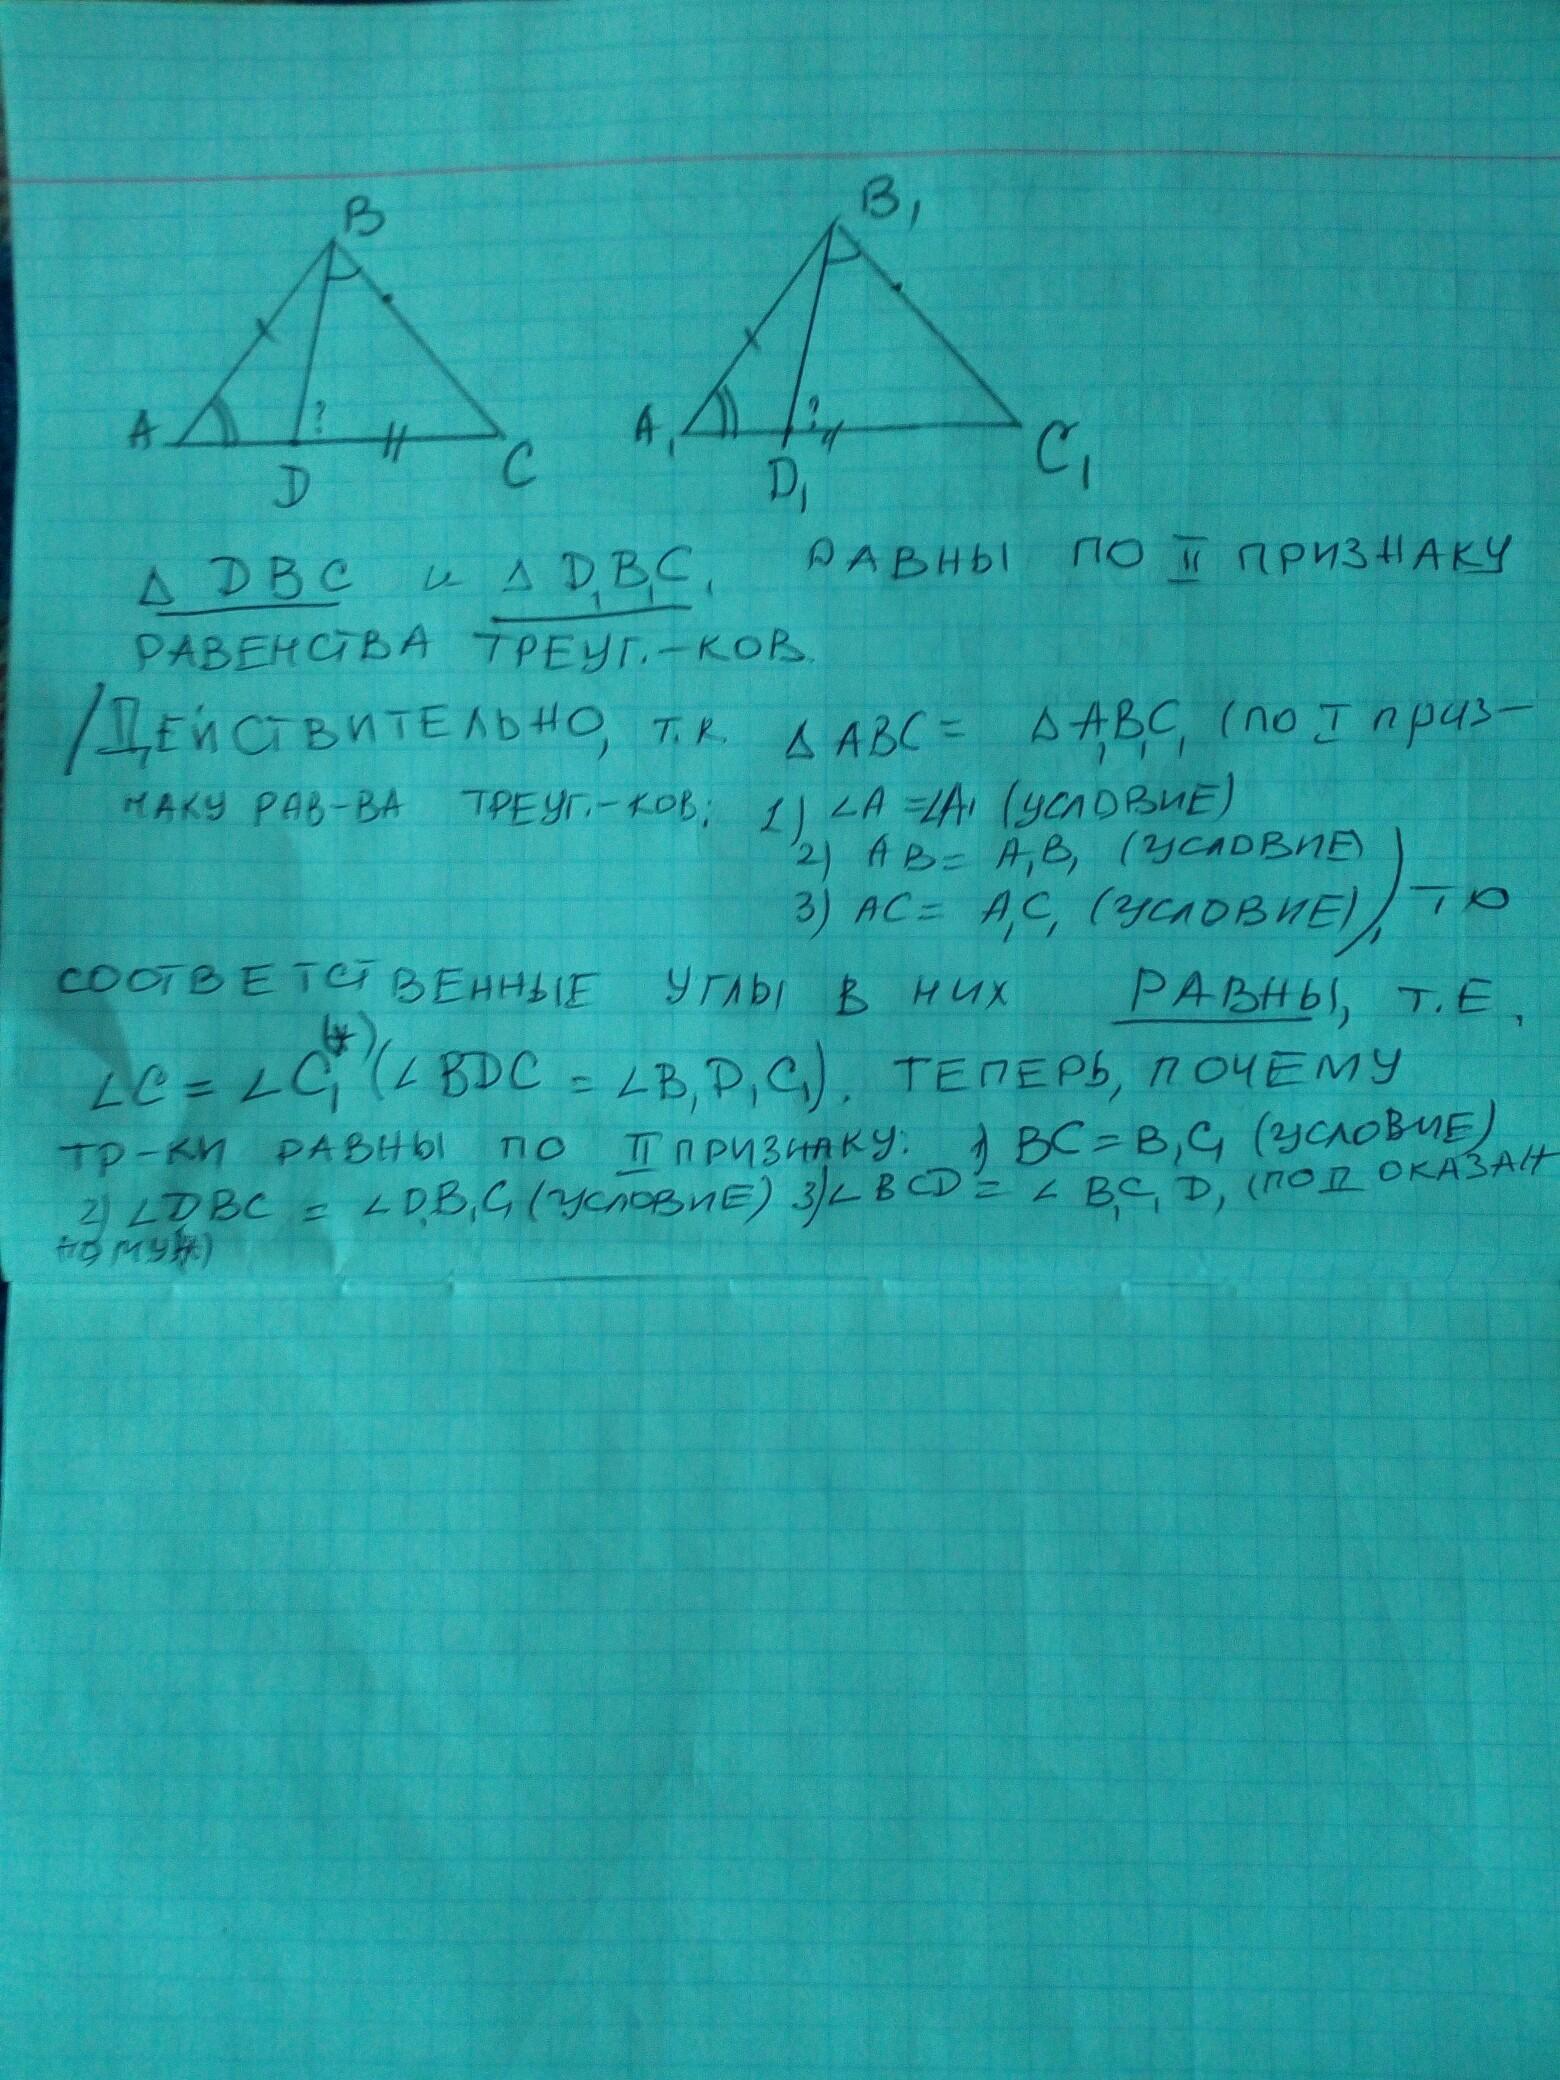 B B₁
A ? C A₁ ? C₁
D D₁
Δ DBC и Δ D₁B₁C₁ РАВНЫ ПО II ПРИЗНАКУ
РАВЕНСТВА ТРЕУГ.-КОВ.
/ДЕЙСТВИТЕЛЬНО, т.к. Δ ABC = Δ A₁B₁C₁ (ПО I ПРИЗ-
НАКУ РАВ-ВА ТРЕУГ.-КОВ: 1) ∠A = ∠A₁ (УСЛОВИЕ)
2) AB = A₁B₁ (УСЛОВИЕ)
3) AC = A₁C₁ (УСЛОВИЕ)), ТО
СООТВЕТСТВЕННЫЕ УГЛЫ В НИХ РАВНЫ, Т.Е.
∠C = ∠C₁ (*) (∠BDC = ∠B₁D₁C₁). ТЕПЕРЬ, ПОЧЕМУ
ТР-КИ РАВНЫ ПО II ПРИЗНАКУ: 1) BC = B₁C₁ (УСЛОВИЕ)
2) ∠DBC = ∠D₁B₁C₁ (УСЛОВИЕ) 3) ∠BCD = ∠B₁C₁D₁ (ПО ДОКАЗАН
НОМУ *)